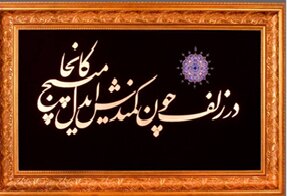 در زلف چون کمندش ای دل مپیچ کانجا